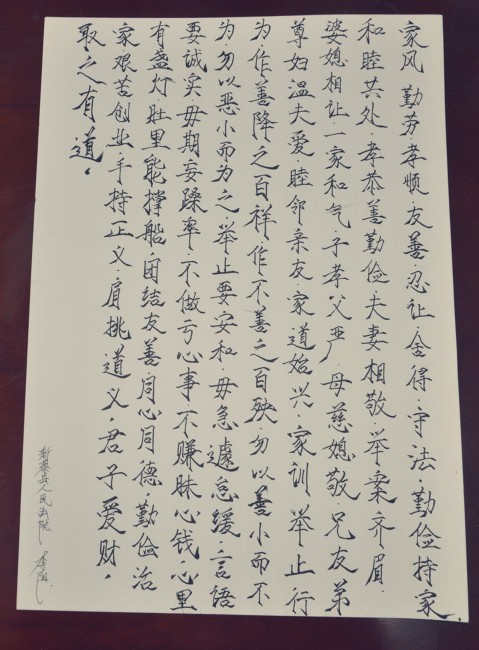 家风·勤劳·孝顺·友善·忍让·舍得·守法·勤俭持家·
和睦共处·孝恭善勤俭夫妻相敬·举案齐眉·
婆媳相让一家和气·子孝父严·母慈媳敬·兄友弟
尊妇温夫爱·睦邻亲友·家道始兴·家训·举止行
为·作善降之百祥作不善之百殃·勿以善小而不
为·勿以恶小而为之·举止要安和·毋急遽怠缓·言语
要诚实·毋期妄躁率·不做亏心事·不赚昧心钱·心里
有盏灯·肚里能撑船·团结友善同心同德·勤俭治
家·艰苦创业·手持正义·肩挑道义·君子爱财·
取之有道·
新蔡县人民法院